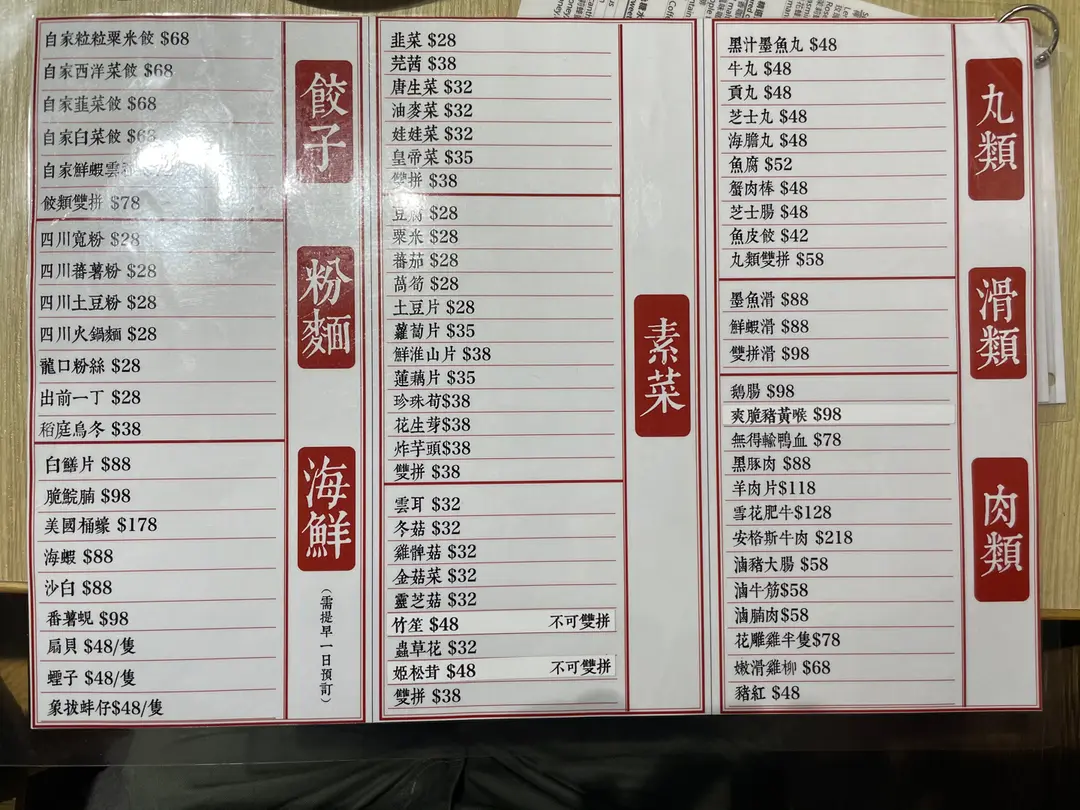 餃子
自家粒粒粟米餃 $68
自家西洋菜餃 $68
自家韮菜餃 $68
自家白菜餃 $68
自家鮮蝦雲
餃類雙拼 $78
粉麵
四川寬粉 $28
四川蕃薯粉 $28
四川土豆粉 $28
四川火鍋麵 $28
龍口粉絲 $28
出前一丁 $28
稻庭烏冬 $38
海鮮
(需提早一日預訂)
白鱔片 $88
脆鯇腩 $98
美國桶蠔 $178
海蝦 $88
沙白 $88
番薯蜆 $98
扇貝 $48/隻
蟶子 $48/隻
象拔蚌仔$48/隻
素菜
韭菜 $28
芫茜 $38
唐生菜 $32
油麥菜 $32
娃娃菜 $32
皇帝菜 $35
雙拼 $38
豆腐 $28
粟米 $28
蕃茄 $28
萵筍 $28
土豆片 $28
蘿蔔片 $35
鮮淮山片 $38
蓮藕片 $35
珍珠荀$38
花生芽$38
炸芋頭$38
雙拼 $38
雲耳 $32
冬菇 $32
雞髀菇 $32
金菇菜 $32
靈芝菇 $32
竹笙 $48 不可雙拼
蟲草花 $32
姬松茸 $48 不可雙拼
雙拼 $38
丸類
黑汁墨魚丸 $48
牛丸 $48
貢丸 $48
芝士丸 $48
海膽丸 $48
魚腐 $52
蟹肉棒 $48
芝士腸 $48
魚皮餃 $42
丸類雙拼 $58
滑類
墨魚滑 $88
鮮蝦滑 $88
雙拼滑 $98
肉類
鵝腸 $98
爽脆豬黃喉 $98
無得輸鴨血 $78
黑豚肉 $88
羊肉片$118
雪花肥牛$128
安格斯牛肉 $218
滷豬大腸 $58
滷牛筋$58
滷腩肉$58
花雕雞半隻$78
嫩滑雞柳 $68
豬紅 $48